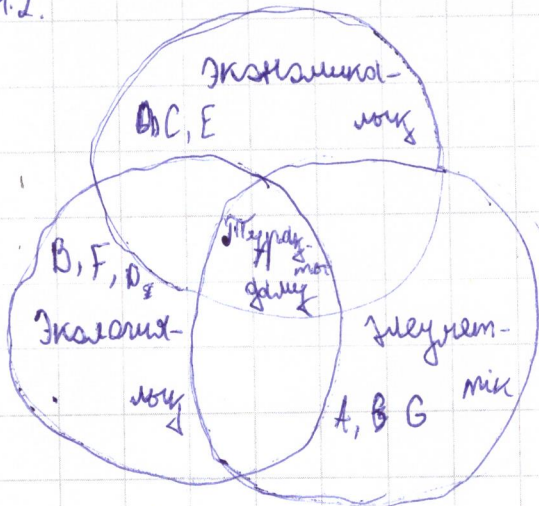 1.2.
Экономика-
лық
C, E
Тұрақ-
ты
даму
B, F, D,
Экология-
лық
Әлеумет-
тік
A, B G